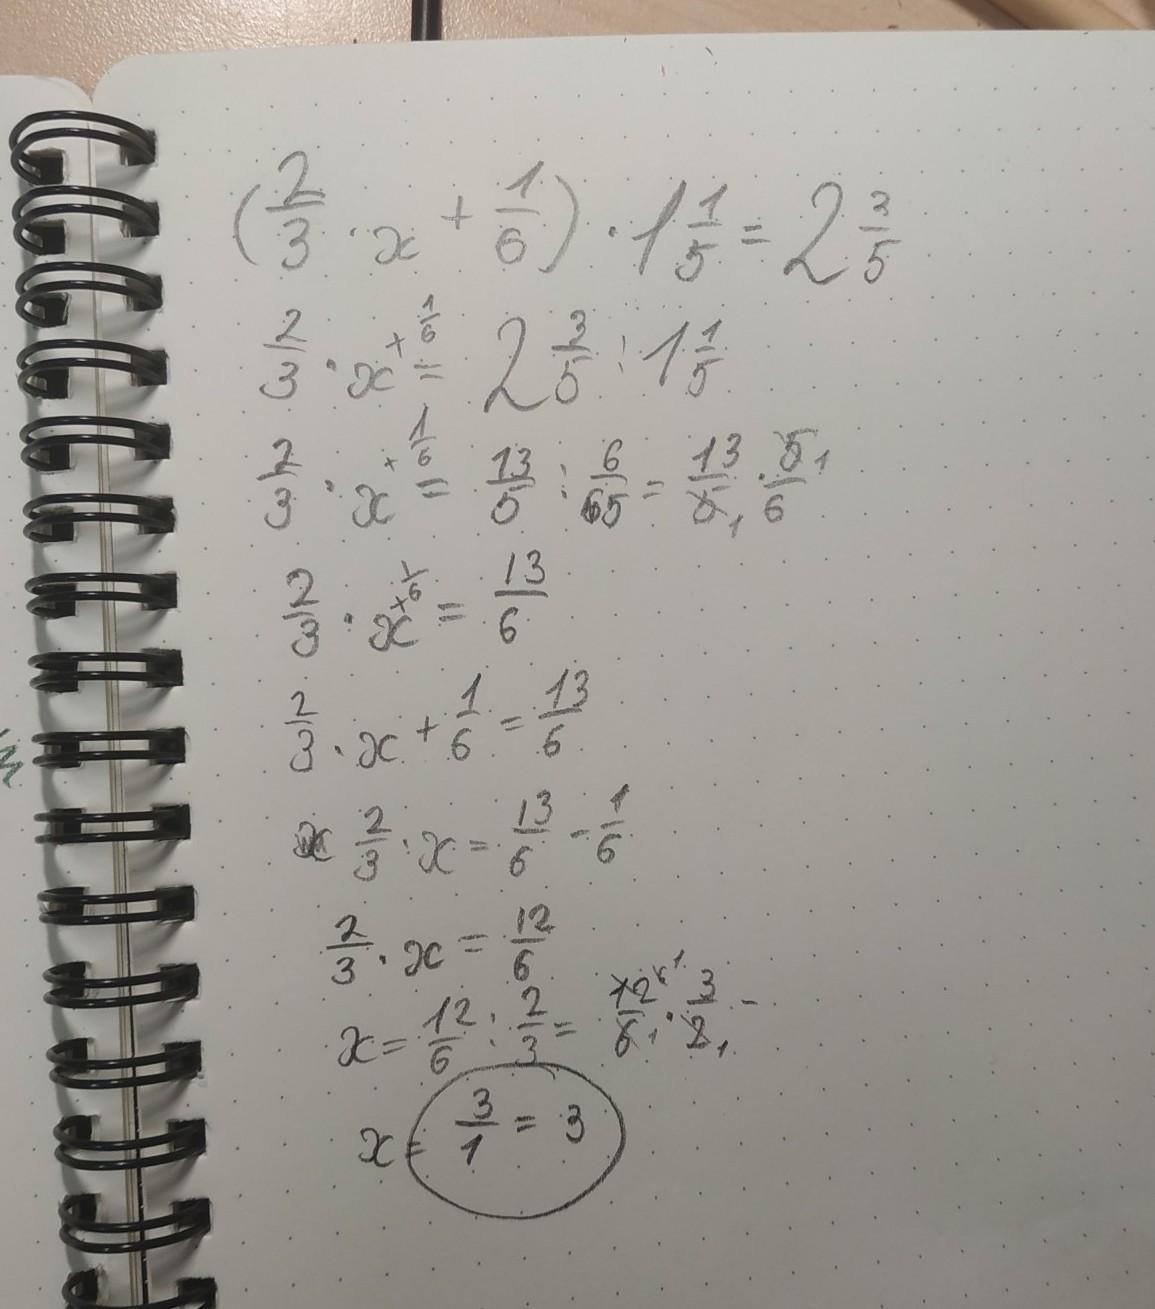 (2/3 · x + 1/6) · 1 1/5 = 2 3/5
2/3 · x + 1/6 = 2 3/5 : 1 1/5
2/3 · x + 1/6 = 13/5 : 6/5 = 13/5 1 · 5 1/6
2/3 · x + 1/6 = 13/6
2/3 · x + 1/6 = 13/6
2/3 · x = 13/6 - 1/6
2/3 · x = 12/6
x = 12/6 : 2/3 = 12 6 1/6 1 · 3/2 1 -
x = 3/1 = 3